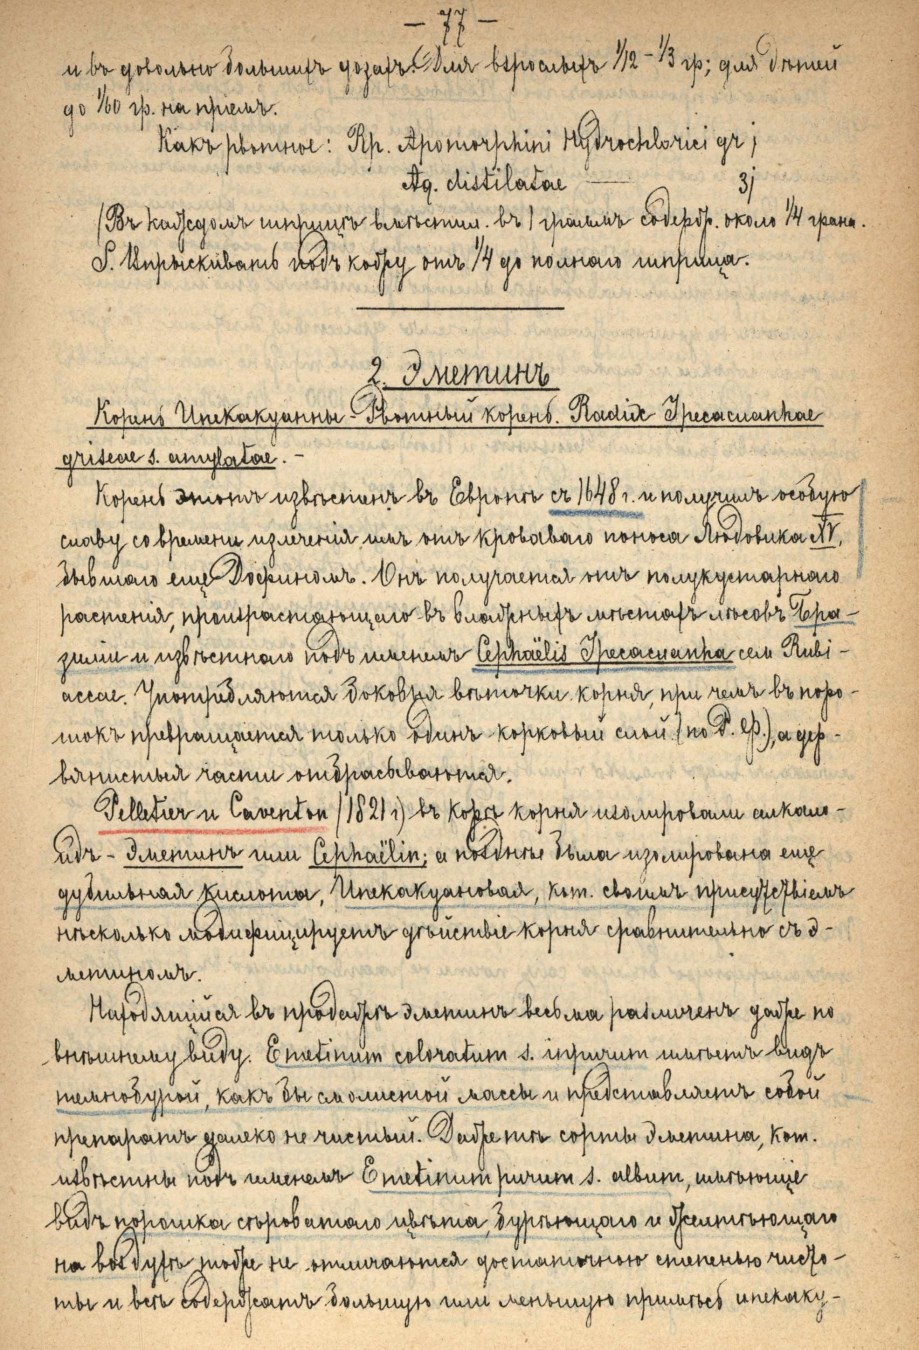 — 77 —
и въ довольно большихъ дозахъ. Для взрослыхъ 1/12 – 1/3 гр; для дѣтей
до 1/60 гр. на пріемъ.
Какъ рвотное: Rp. Apomorphini Hydrochlorici gr j
Aq. distilatae — 3j
(Въ каждомъ шприцѣ вмѣстим. въ 1 граммъ содерж. около 1/4 грана.
S. Впрыскивать подъ кожу отъ 1/4 до полнаго шприца.
2. Эметинъ
Корень Ипекакуанны – Рвотный корень. Radix Ipecacuanhae
griseae s. amylatae. –
Корень этотъ извѣстенъ въ Европѣ съ 1648 г. и получилъ особую
славу со времени излеченія имъ отъ кроваваго поноса Людовика XIV,
бывшаго еще Дофиномъ. Онъ получается отъ полукустарнаго
растенія, произрастающаго въ влажныхъ мѣстахъ лѣсовъ Бра-
зиліи и извѣстнаго подъ именемъ Cephaëlis Ipecacuanha сем Rubi-
aceae. Употребляются боковыя вѣточки корня, при чемъ въ поро-
шокъ превращается только одинъ корковый слой (по Р. Ф.), а дер-
вянистыя части отбрасываются.
Pelletier и Caventon (1821 г) въ корѣ корня изолировали алкало-
идъ – Эметинъ или Cephaëlin; а позднѣе была изолирована еще
дубильная кислота, Ипекакуановая, кот. своимъ присутствіемъ
нѣсколько модифицируетъ дѣйствіе корня сравнительно съ э-
метиномъ.
Находящійся въ продажѣ эметинъ весьма различенъ даже по
внѣшнему виду. Emetinum coloratum s. inpurum имѣетъ видъ
темнобурой, какъ бы смолистой массы и представляетъ собой
препаратъ далеко не чистый. Даже тѣ сорты эметина, кот.
извѣстны подъ именемъ Emetinum purum s. album, имѣющіе
видъ порошка сѣроватаго цвѣта, бурѣющаго и желтѣющаго
на воздухѣ тоже не отличаются достаточною степенью чисто-
ты и всѣ содержатъ большую или меньшую примѣсь ипекаку-